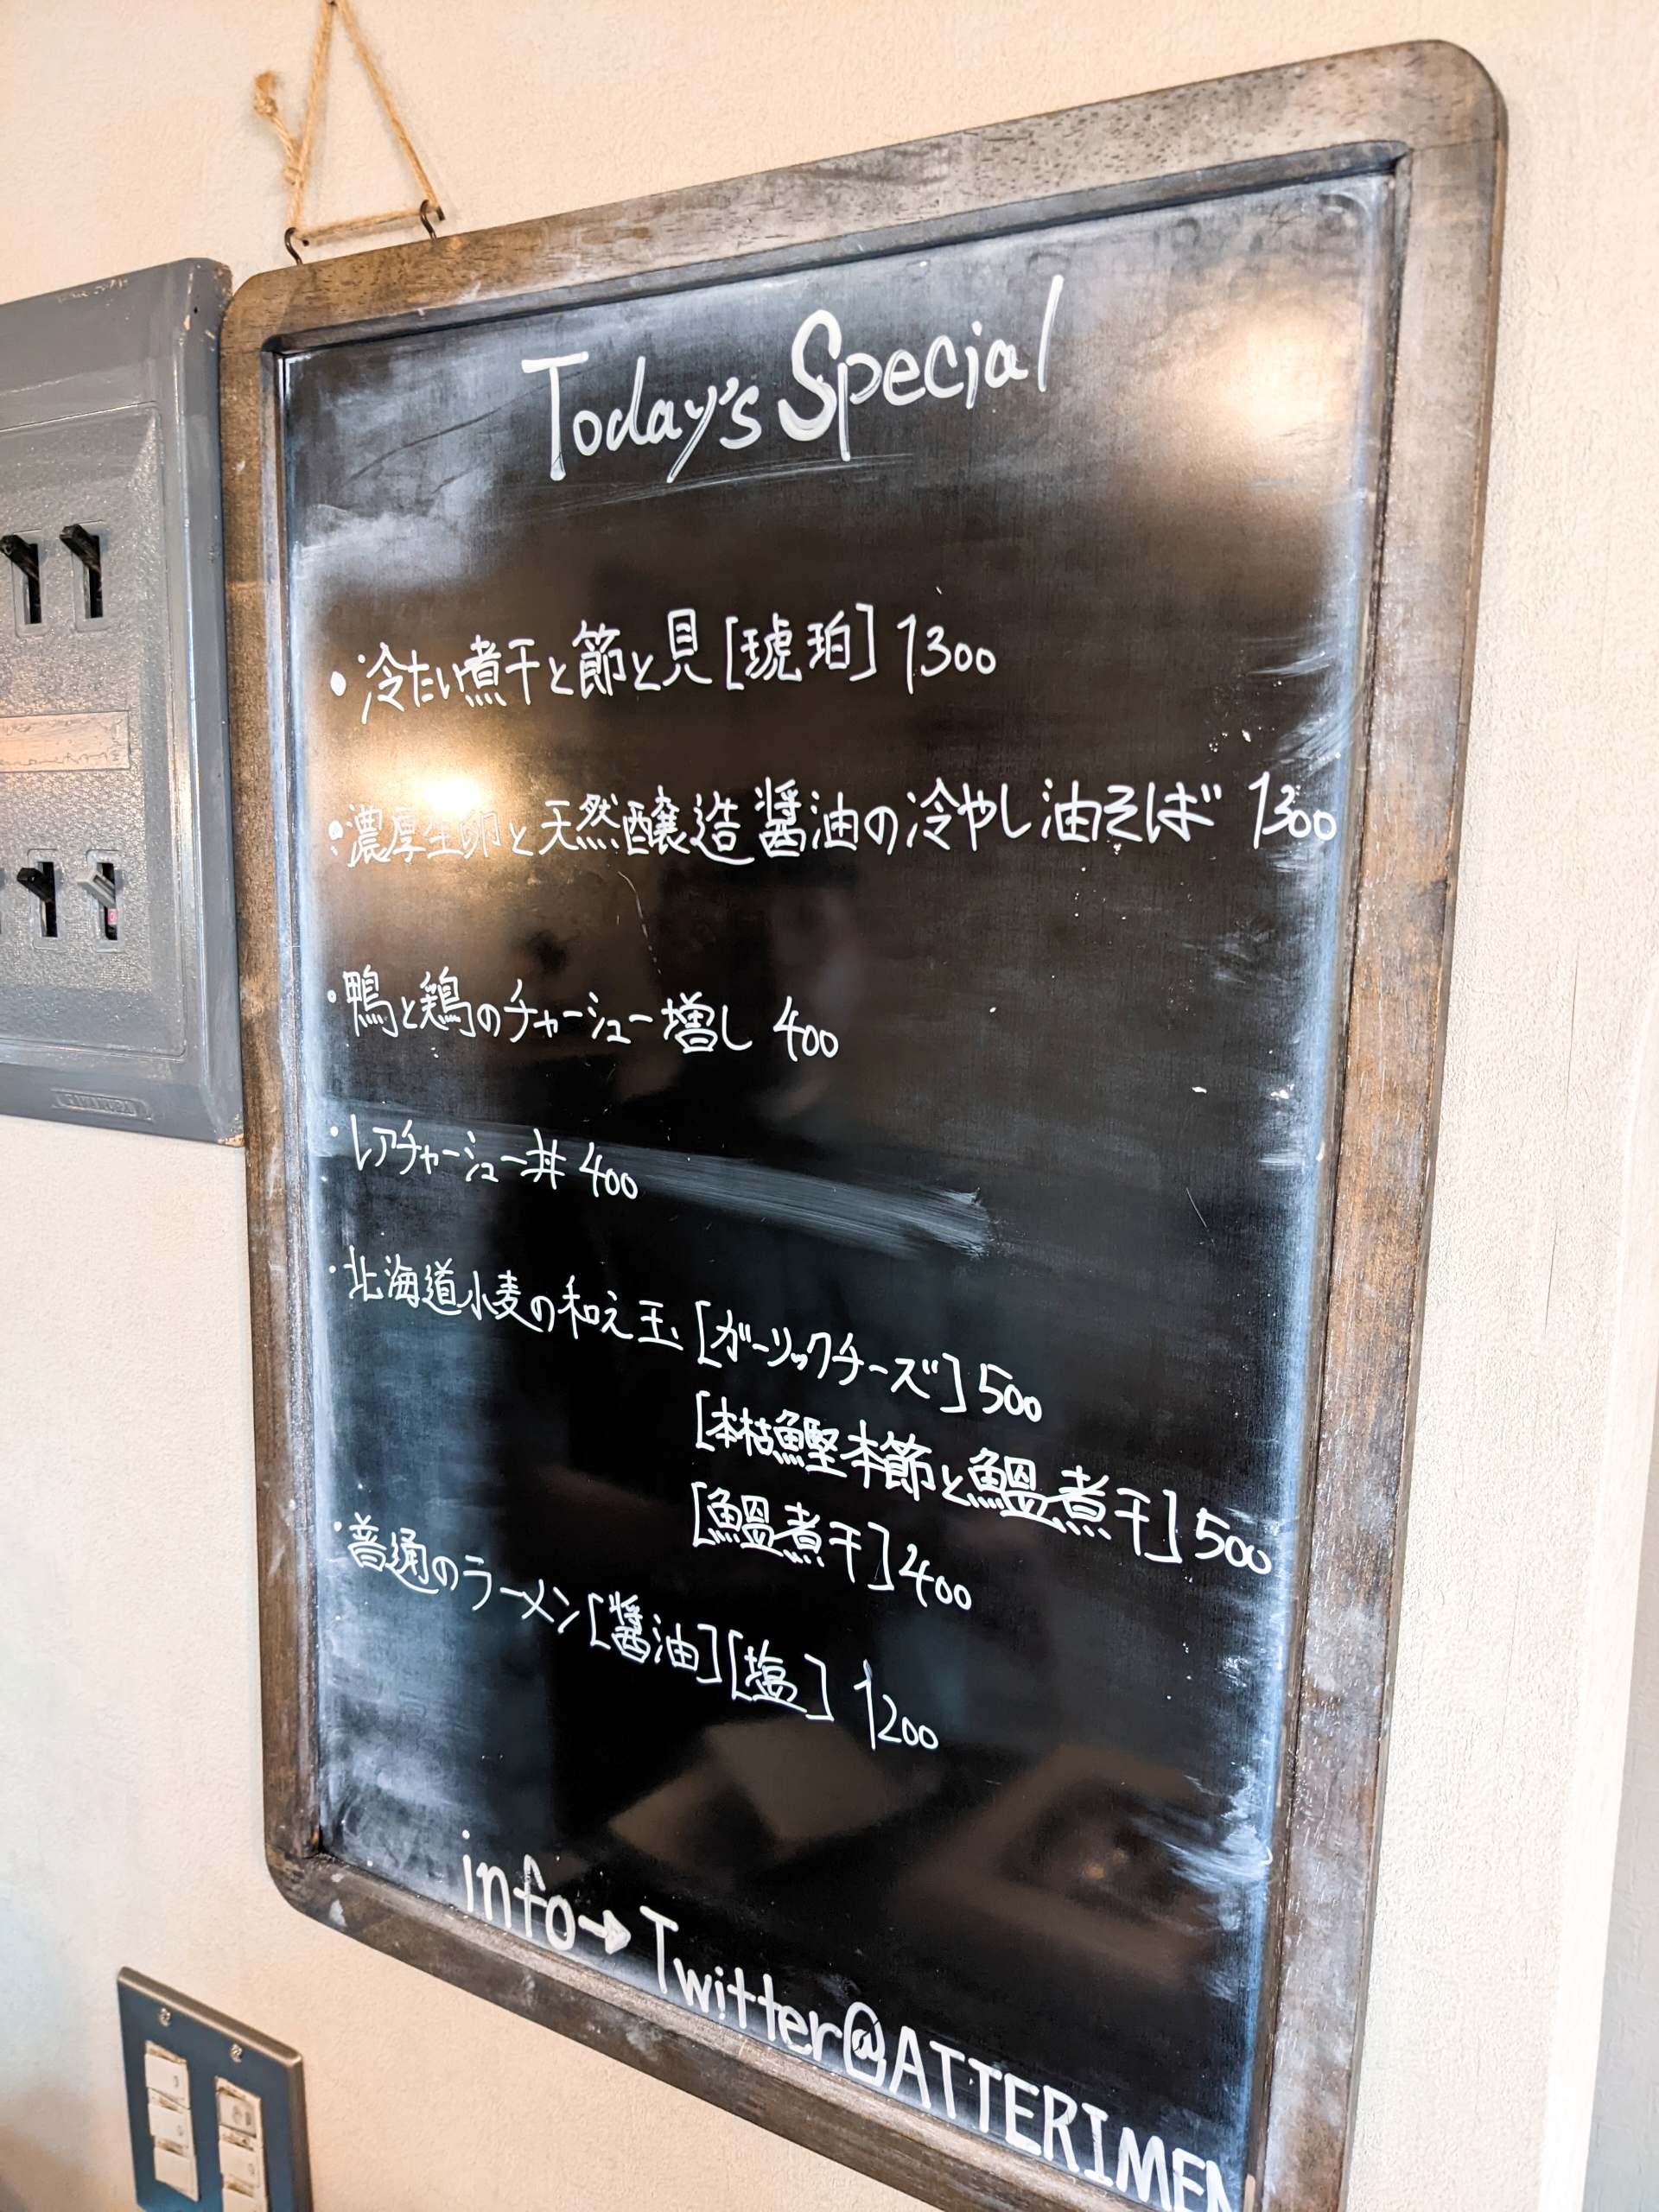 Today's Special
・冷たい煮干と節と貝[琥珀] 1300
・濃厚生卵と天然醸造醤油の冷やし油そば 1300
・鴨と鶏のチャーシュー増し 400
・レアチャーシュー丼 400
・北海道小麦の和え玉 [ガーリックチーズ] 500
[本枯鰹本節と鰮煮干] 500
[鰮煮干] 400
・普通のラーメン[醤油][塩] 1200
info→Twitter@ATTERIMEN